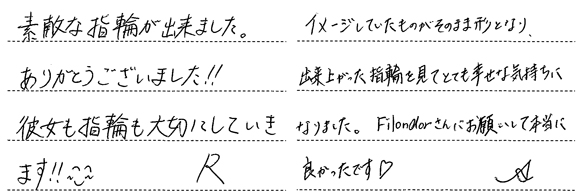 素敵な指輪が出来ました。
ありがとうございました!!
彼女も指輪も大切にしていき
ます!!
R
イメージしていたものがそのまま形となり、
出来上がった指輪を見てとても幸せな気持ちに
なりました。Filondorさんにお願いして本当に
良かったです♡
A